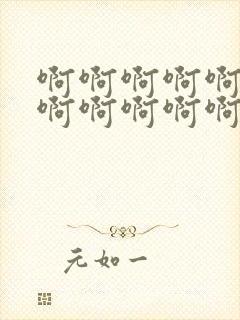 啊啊啊啊啊
啊啊啊啊啊
元如一